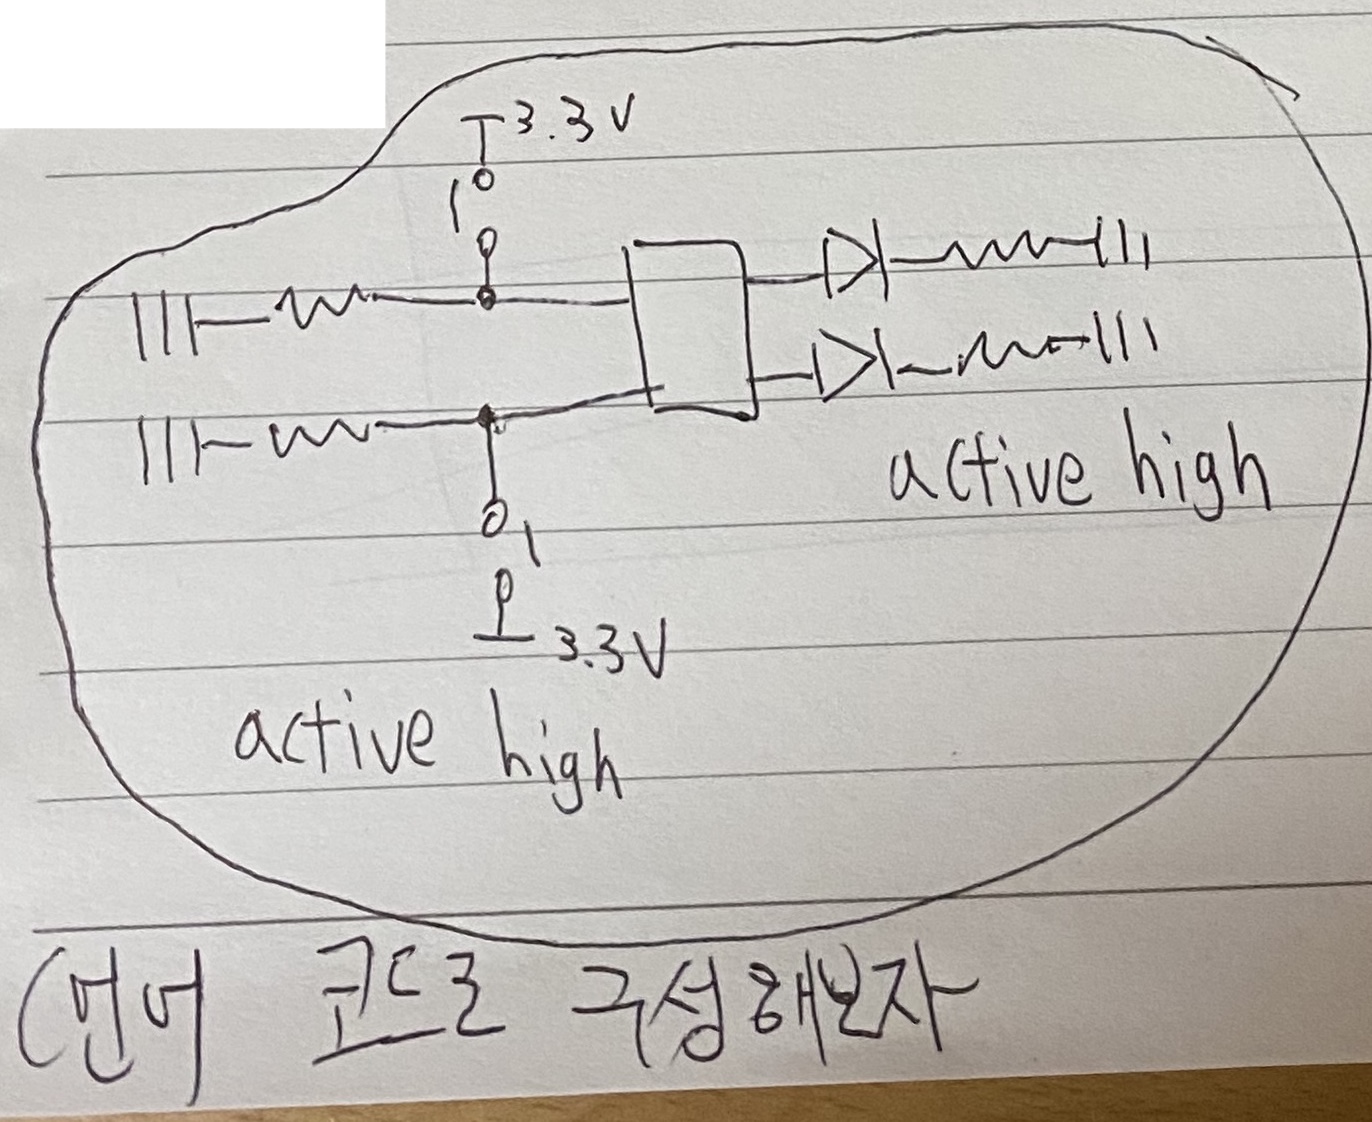 3.3V
active high
3.3V
active high
C언어 코드로 구성해보자